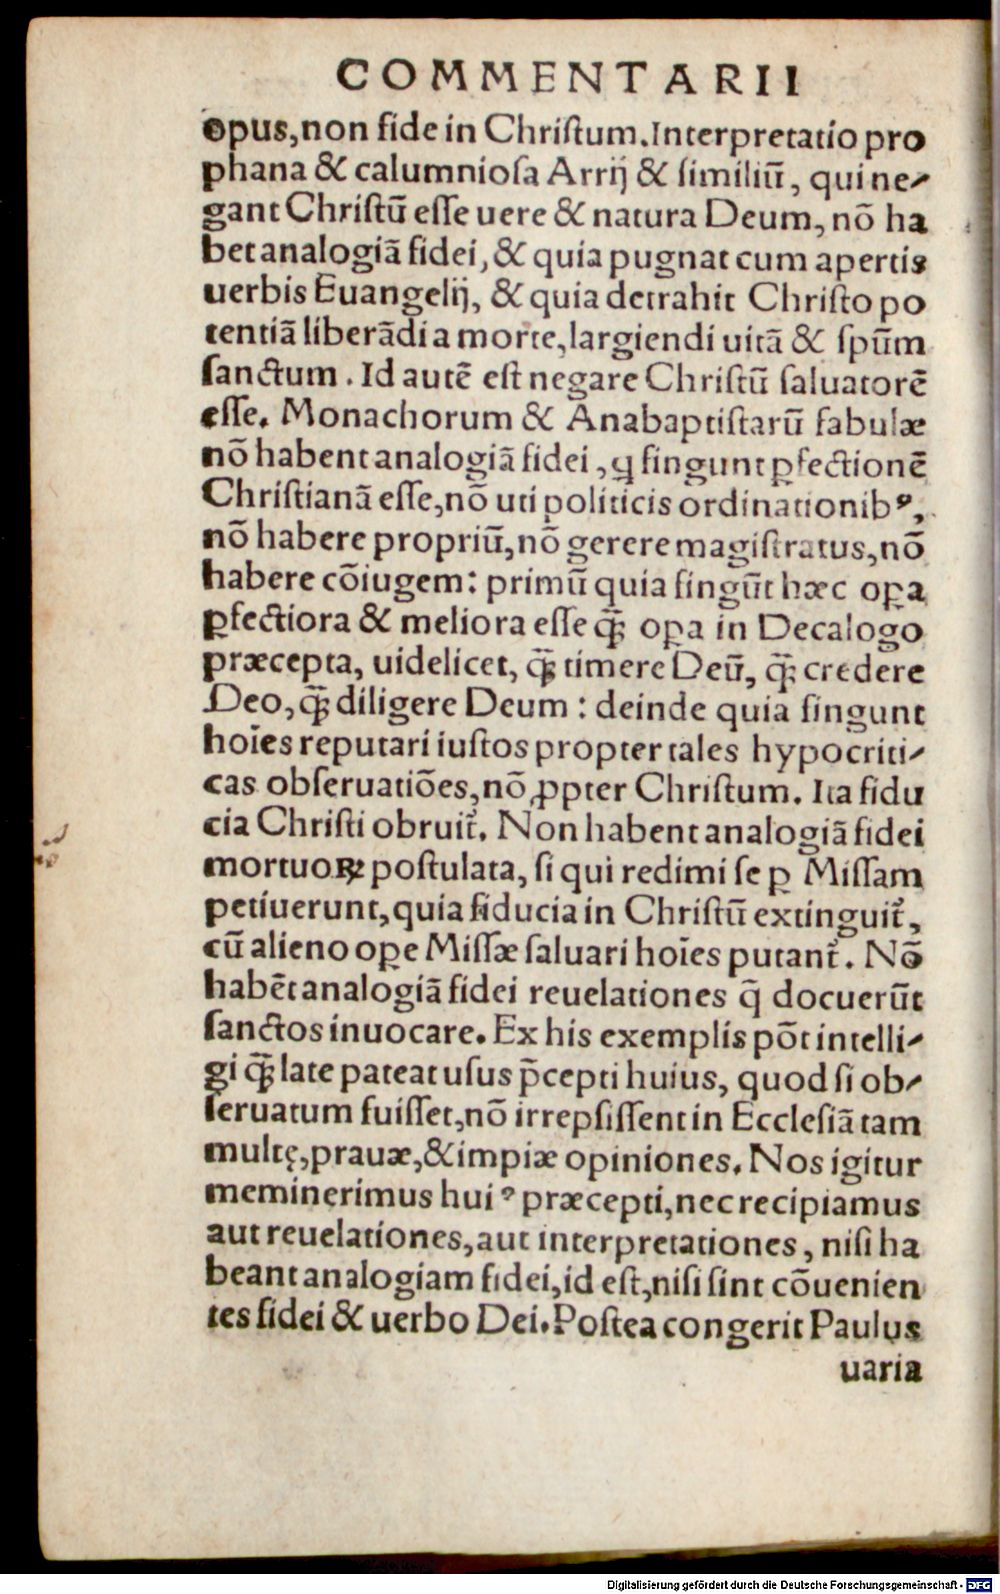 COMMENTARII
opus,non fide in Chriſtum.Interpretatio pro
phana & calumnioſa Arrij & ſimiliū, qui ne⸗
gant Chriſtū eſſe uere & natura Deum, nō ha
bet analogiā fidei, & quia pugnat cum apertis
uerbis Euangelij, & quia detrahit Chriſto po
tentiā liberādi a morte,largiendi uitā & ſpūm
ſanctum. Id autē eſt negare Chriſtū ſaluatorē
eſſe. Monachorum & Anabaptiſtarū fabulæ
nō habent analogiā fidei, ꝗ fingunt ꝑfectionē
Chriſtianā eſſe,nō uti politicis ordinationibꝰ,
nō habere propriū,nō gerere magiſtratus,nō
habere cōiugem: primū quia fingūt hæc oꝑa
ꝑfectiora & meliora eſſe ꝗ̄ꝫ oꝑa in Decalogo
præcepta, uidelicet, ꝗ̄ꝫ timere Deū, ꝗ̄ꝫ credere
Deo, ꝗ̄ꝫ diligere Deum: deinde quia fingunt
hoīes reputari iuſtos propter tales hypocriti⸗
cas obſeruatiōes,nō ꝓpter Chriſtum. Ita fidu
cia Chriſti obruit᷑. Non habent analogiā fidei
mortuoꝝ poſtulata, ſi qui redimi ſe ꝑ Miſſam
petiuerunt,quia fiducia in Chriſtū extinguit᷑,
cū alieno oꝑe Miſſæ ſaluari hoīes putant᷑. Nō
habēt analogiā fidei reuelationes q̄ docuerūt
ſanctos inuocare. Ex his exemplis pōt intelli⸗
gi ꝗ̄ꝫ late pateat uſus p̄cepti huius, quod ſi ob⸗
ſeruatum fuiſſet,nō irrepſiſſent in Eccleſiā tam
multę,prauæ,&impiæ opiniones. Nos igitur
meminerimus huiꝰ præcepti,nec recipiamus
aut reuelationes,aut interpretationes, niſi ha
beant analogiam fidei,id eſt,niſi ſint cōuenien
tes fidei & uerbo Dei.Poſtea congerit Paulus
uaria
Digitalisierung gefördert durch die Deutsche Forschungsgemeinschaft - DFG